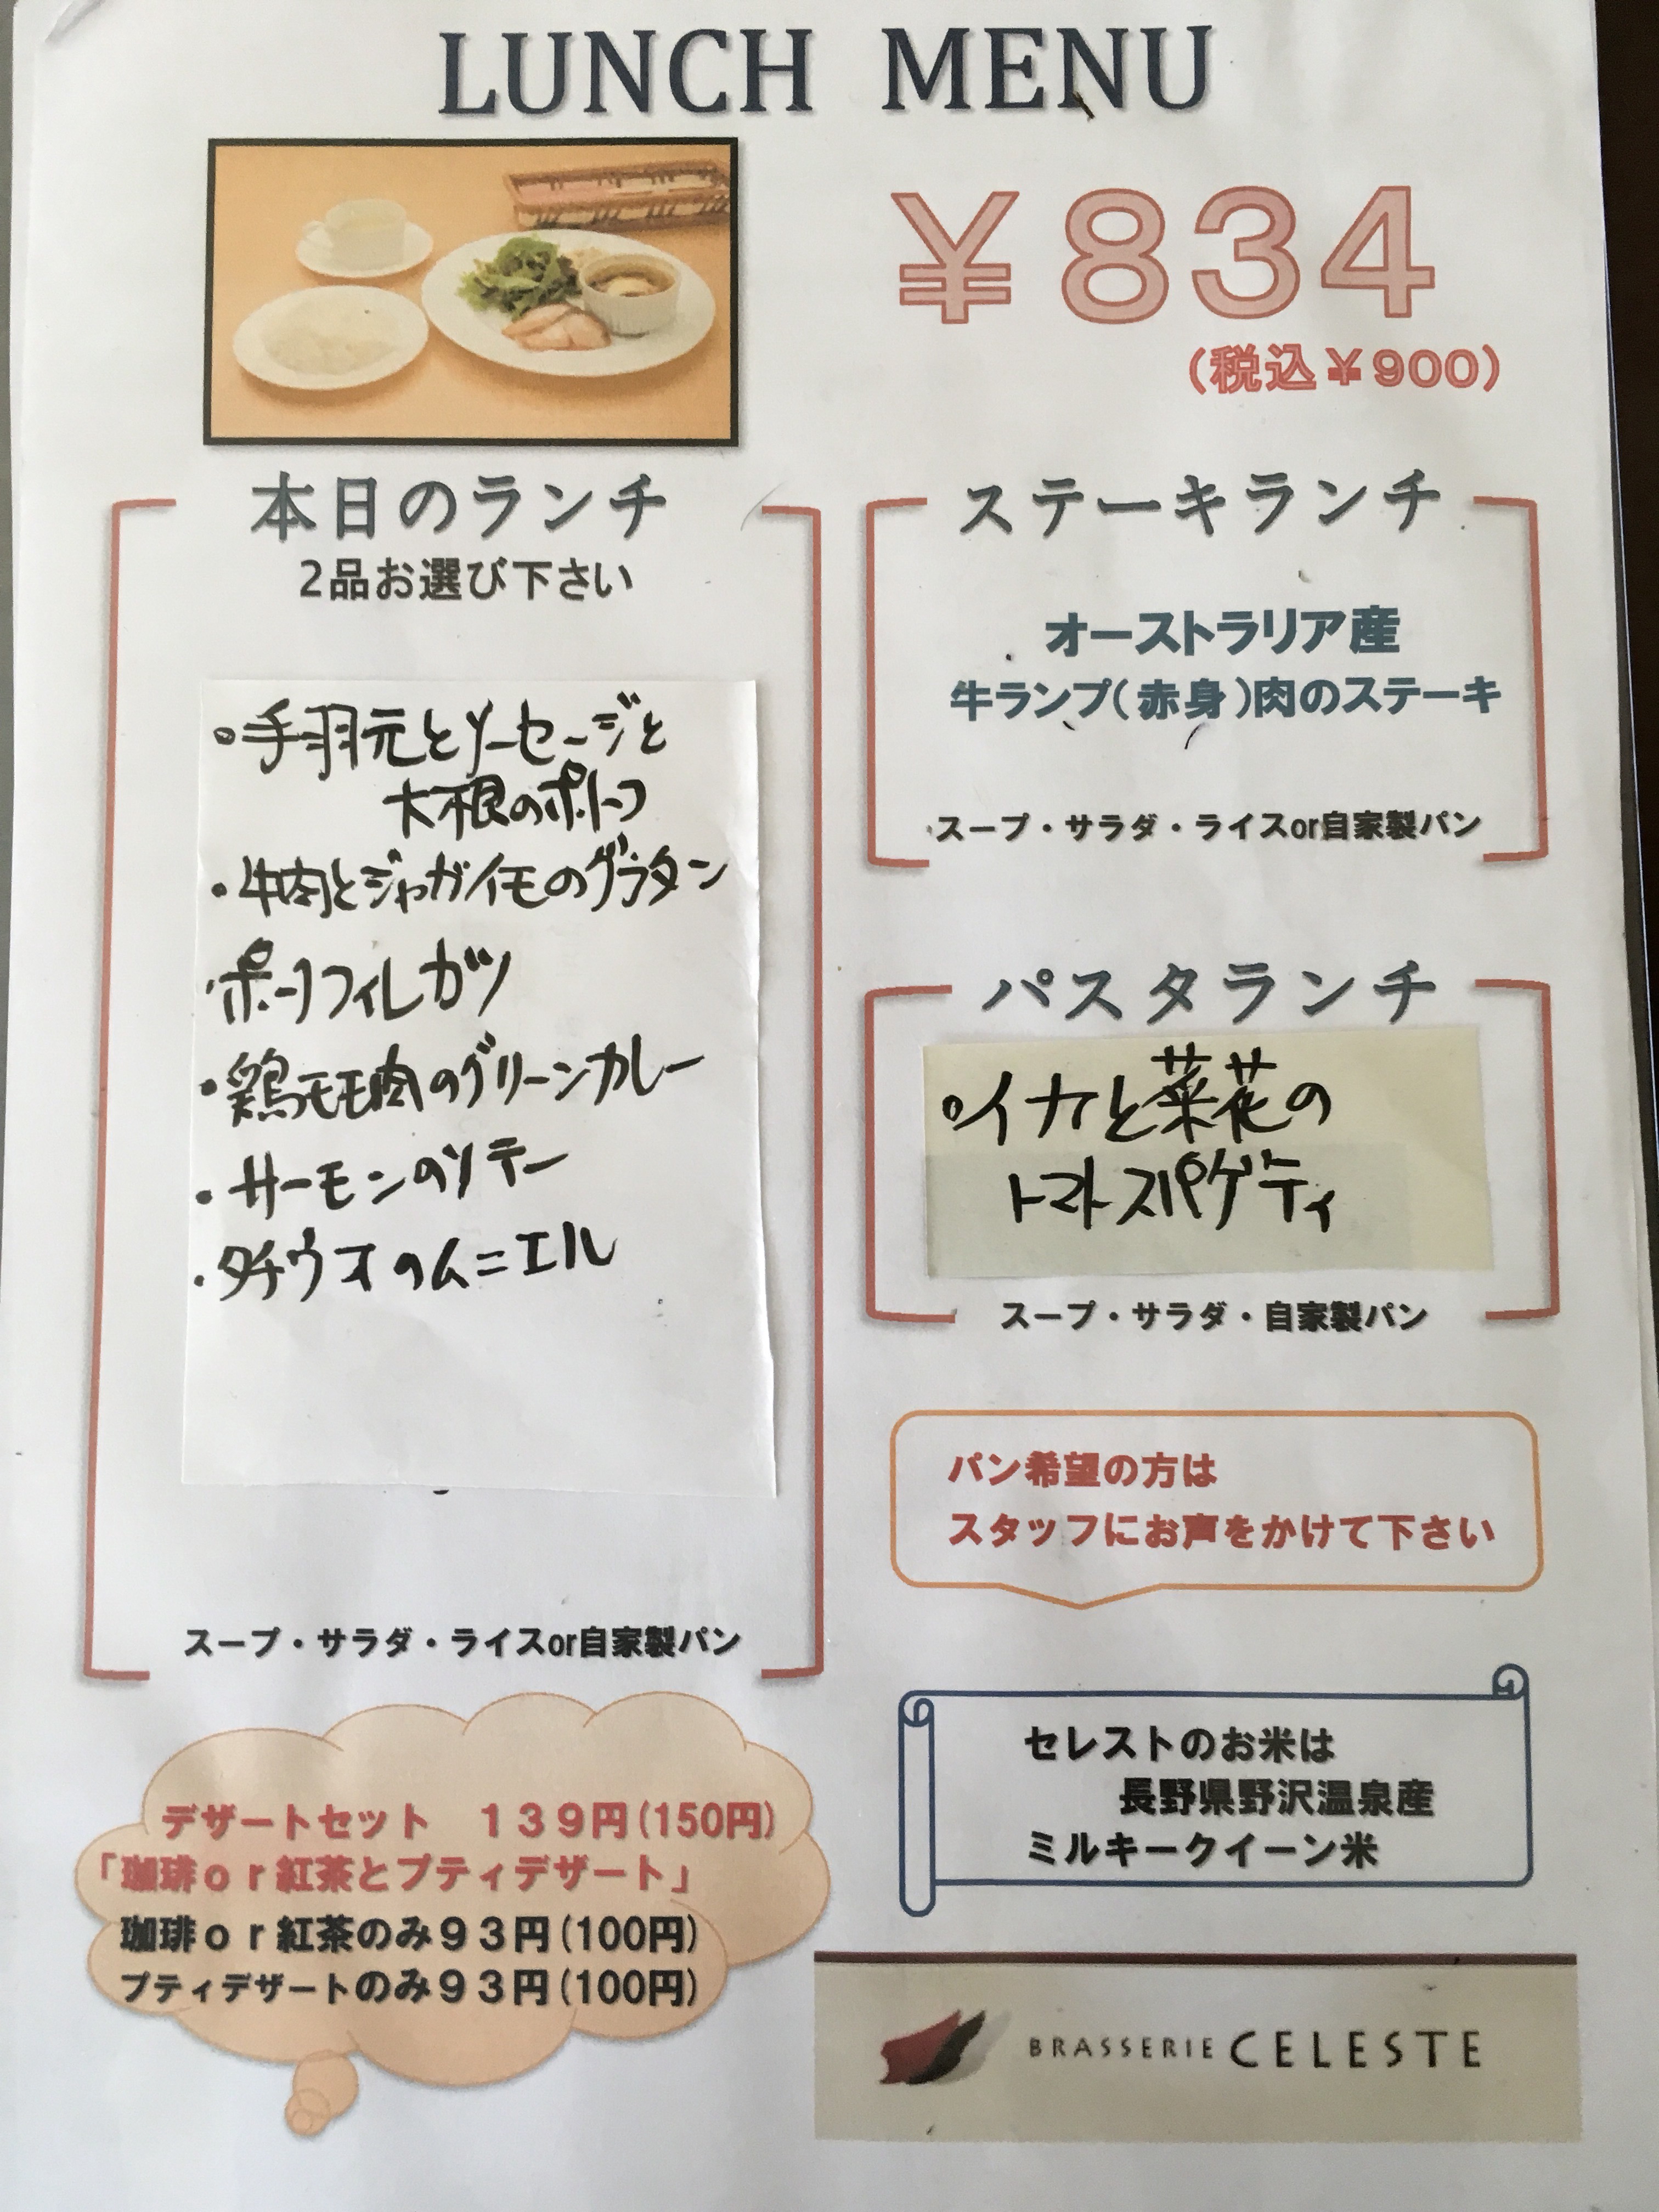 LUNCH MENU
￥834
(税込￥900)
本日のランチ
2品お選び下さい
・手羽元とソーセージと
大根のポトフ
・牛肉とジャガイモのグラタン
・ポークフィレカツ
・鶏モモ肉のグリーンカレー
・サーモンのソテー
・タチウオのムニエル
スープ・サラダ・ライスor自家製パン
ステーキランチ
オーストラリア産
牛ランプ(赤身)肉のステーキ
スープ・サラダ・ライスor自家製パン
パスタランチ
・イカと菜花の
トマトスパゲティ
スープ・サラダ・自家製パン
パン希望の方は
スタッフにお声をかけて下さい
デザートセット　１３９円(150円)
「珈琲ｏｒ紅茶とプティデザート」
珈琲ｏｒ紅茶のみ９３円(100円)
プティデザートのみ９３円(100円)
セレストのお米は
長野県野沢温泉産
ミルキークイーン米
BRASSERIE CELESTE